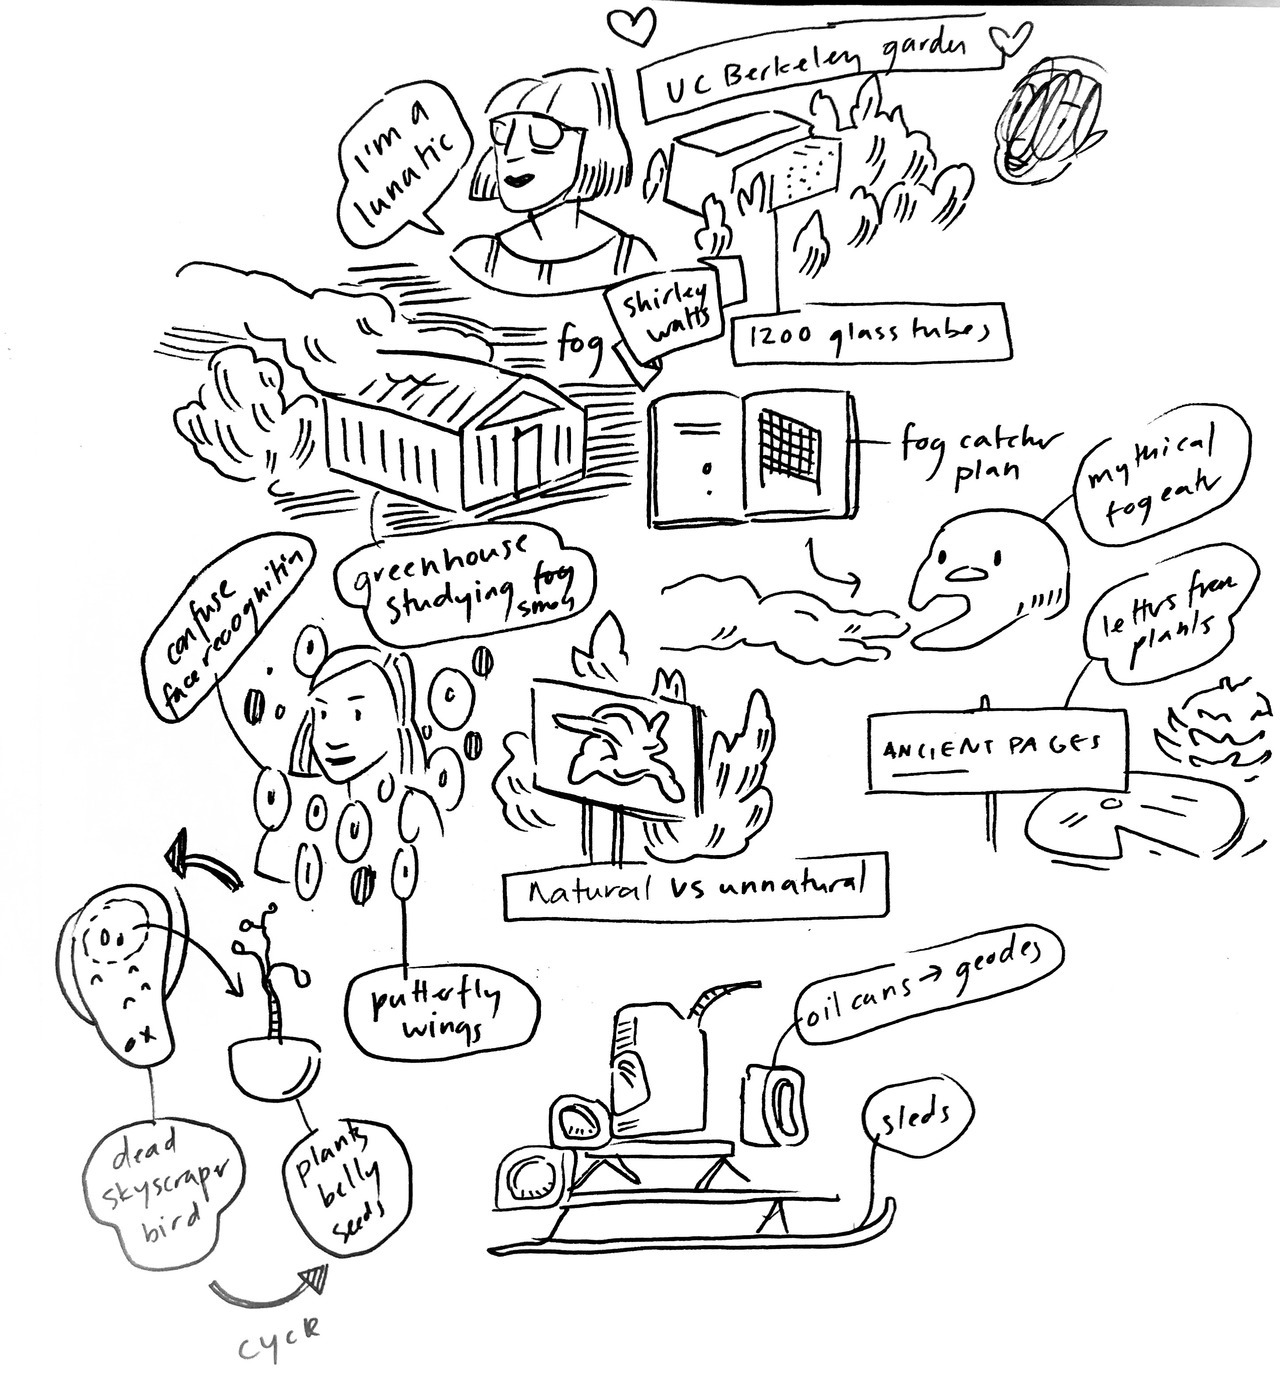 UC Berkeley garden
I'm a
lunatic
shirley
watts
fog
1200 glass tubes
fog catcher
plan
mythical
fog eatr
greenhouse
studying fog
smog
confuse
face recognitin
letters from
plants
ANCIENT PAGES
Natural vs unnatural
putterfly
wings
oil cans → geodes
sleds
dead
skyscraper
bird
plants
belly
seeds
cycle